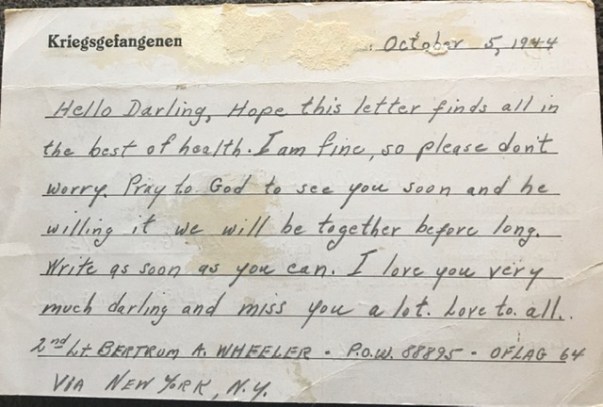 Kriegsgefangenen
October 5, 1944
Hello Darling, Hope this letter finds all in
the best of health. I am fine, so please don't
worry. Pray to God to see you soon and he
willing it we will be together before long.
Write as soon as you can. I love you very
much darling and miss you a lot. Love to all.
2nd Lt BERTRUM A. WHEELER - P.O.W. 88895 - OFLAG 64
VIA NEW YORK, N.Y.